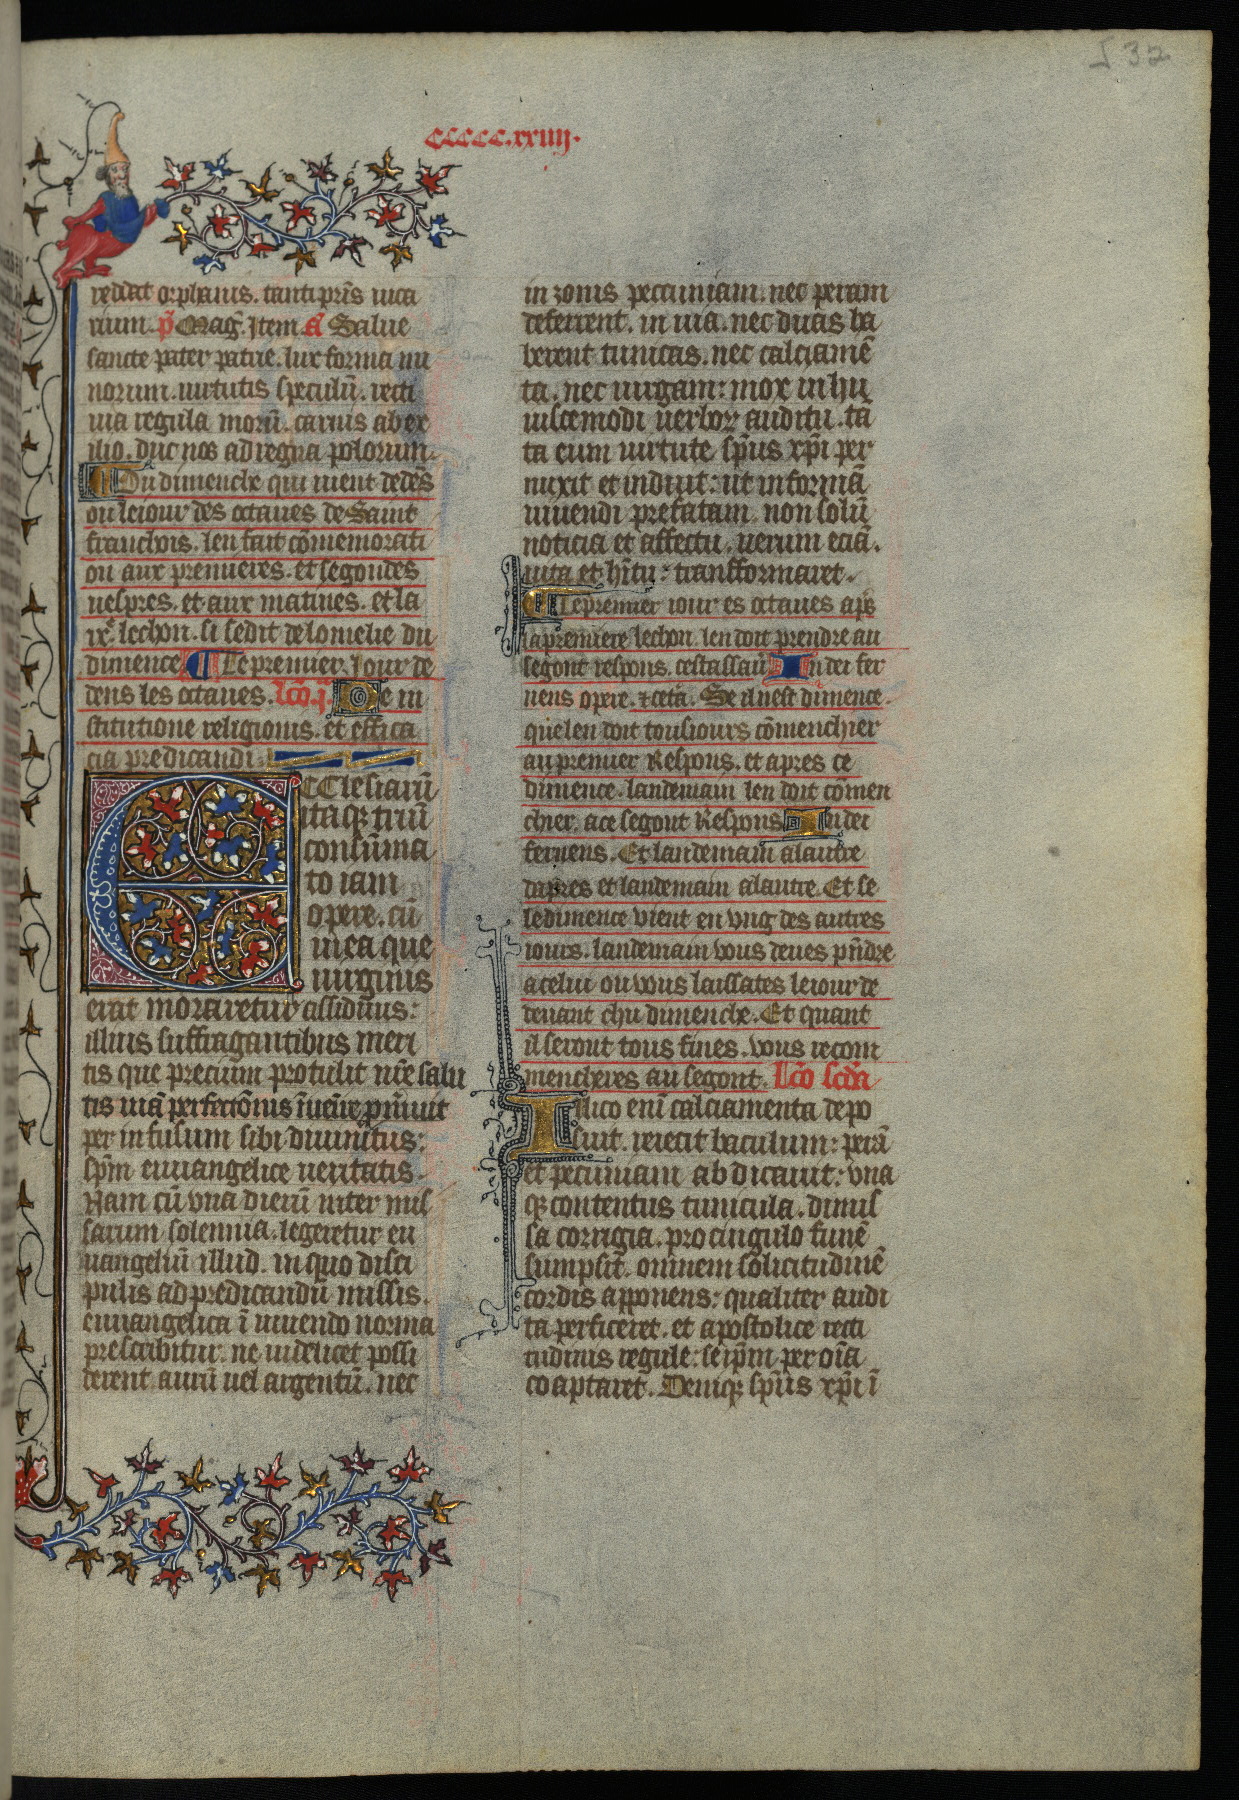 532
ccccc.xxiiij.
reddat orphanis. tanti pr̄is uica
rium. p̄ Mag̃. Jtem ā Salue
sancte pater patrie. lux forma mi
norum. uirtutis speculū. recti
uia regula morū. carnis ab ex
ilio. duc nos ad regna polorum.
Du dimenche qui uient dedēs
ou le iour des octaues de Saint
franchois. len fait cōmemorati
on aux premieres. et segondes
uespres. et aux matines. et la
ixᵉ. lechon. si sedit de lomelie du
dimence ¶ Le premier. Jour de
dens les octaues. lcō. j. De in
stitutione religionis. et effica
cia predicandi.
ECclesiarū
itaqꝫ triū
consūma
to iam
opere. cū
in ea que
uirginis
erat moraretur assiduus:
illius suffragantibus meri
tis que precium protulit nr̄e salu
tis uiā perfectōnis īuenire pm̄uit
per infusum sibi diuinitus:
sp̄m euuangelice ueritatis.
Nam cū vna dierū inter mis
sarum solennia. legeretur eu
uangeliū illud. in quo disci
pulis ad predicandū missis.
euuangelica ī uiuendo norma
prescribitur. ne uidelicet possi
derent aurū uel argentū. nec
in zonis pecuniam. nec peram
deferrent. in uia. nec duas ha
berent tunicas. nec calciamē
ta. nec uirgam: mox in hu
iuscemodi uerboꝝ auditu. ta
ta eum uirtute sp̄us xp̄i per
unxit et induit: ut in formā
uiuendi prefatam. non solū
noticia et affectu. uerum eciā.
uita et hītu: transformaret.
¶ Le premier iour es octaues ap̄s
la premiere lechon. len doit prendre au
segont respons. cest assauͦ In dei fer
uens opere. ⁊ ceta. Se il nest dimence.
que len doit tousiours cōmenchier
au premier Respons. et apres ce
dimence. landemain len doit cōmen
chier. a ce segont Respons In dei
feruens. Et landemain a lautre
dapres et landemain a lautre. Et se
le dimence vient en vng des autres
iours. landemain vous deues pn̄dre
a celui ou vous laissates le iour de
deuant chu dimenche. Et quant
il seront tous fines. vous recom
mencheres au segont. lcō scd̄a
Ilico enī calciamenta depo
suit. reiecit baculum: perā
et pecuniam abdicauit: vna
qꝫ contentus tunicula. dimis
sa corrigia. pro cingulo funē
sumpsit. omnem solicitudinē
cordis apponens: qualiter audi
ta perficeret. et apostolice recti
tudinis regule: se ip̄m per oīa
coaptaret. Deniqꝫ sp̄us xp̄i ī